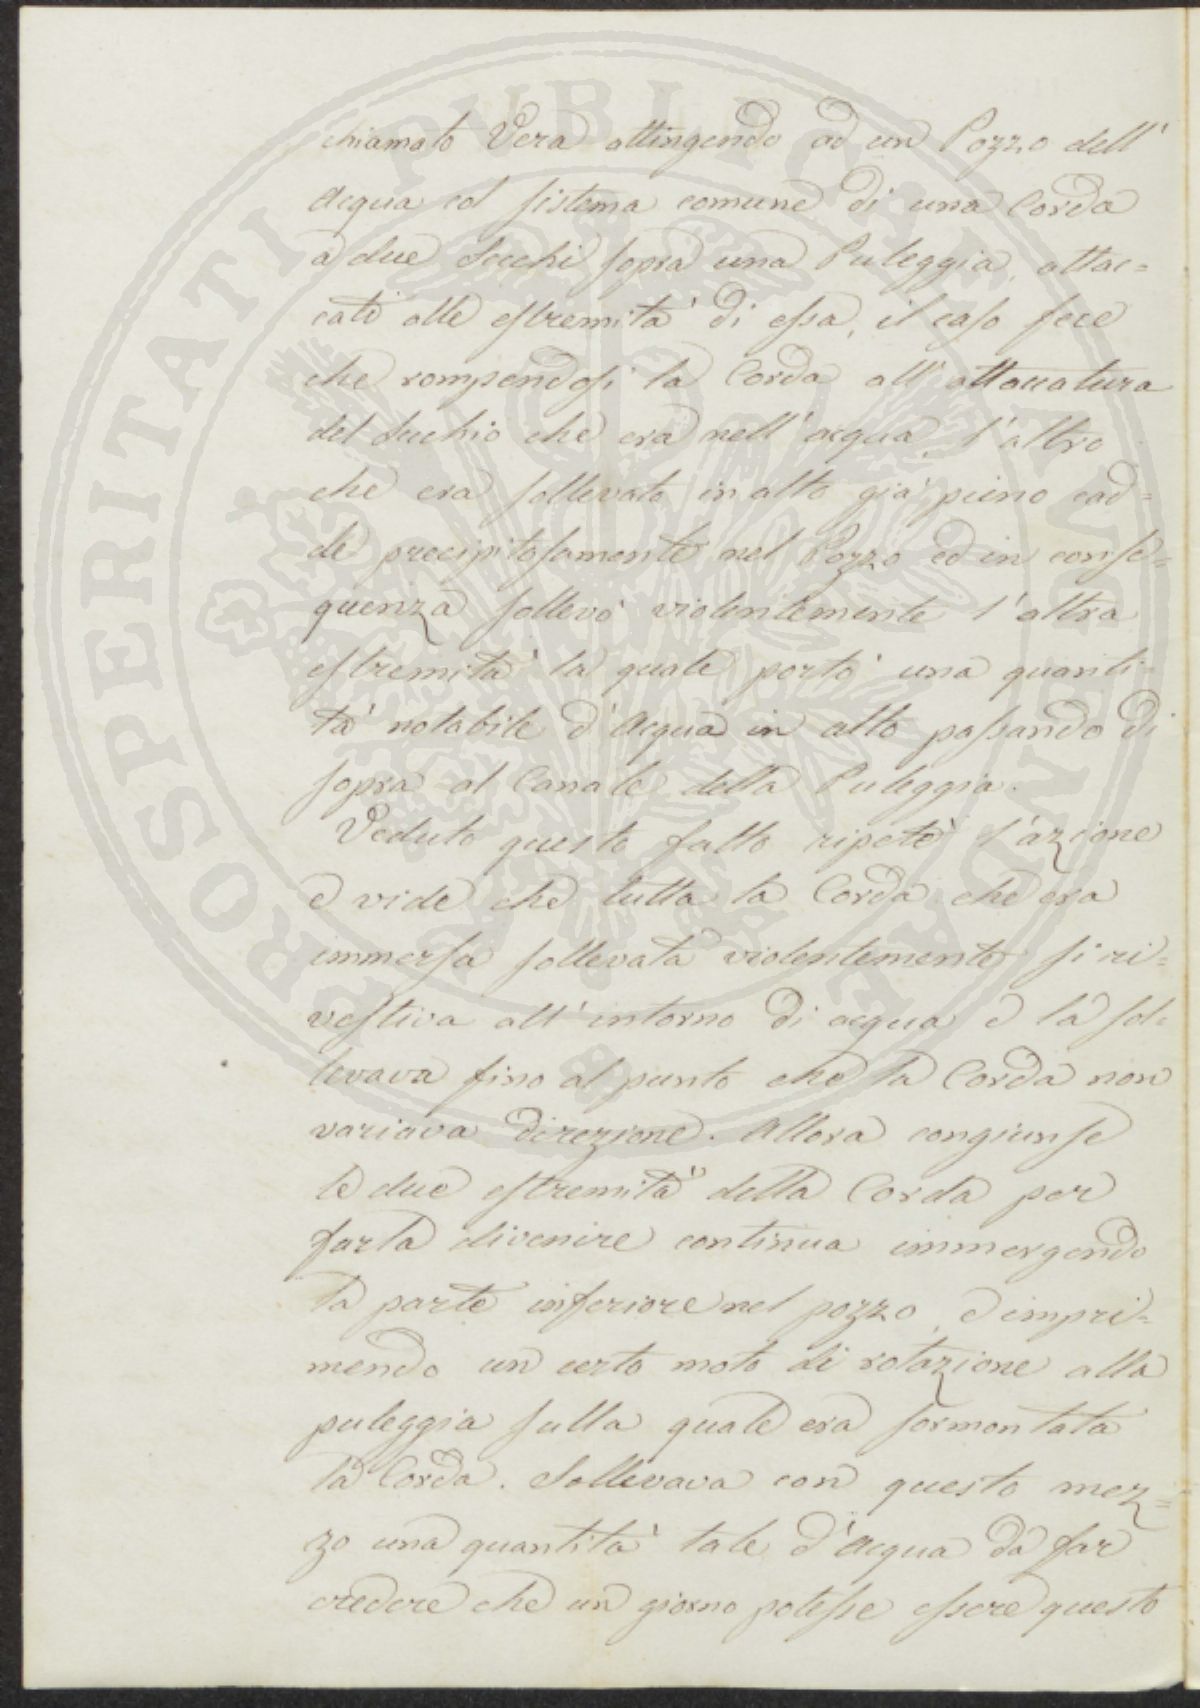 chiamato Vera attingendo ad un Pozzo dell'
acqua col sistema comune di una Corda
a due Secchi sopra una Puleggia, attac=
cati alle estremità di essa, il caso fece
che rompendosi la Corda all'attaccatura
del Secchio che era nell'acqua, l'altro
che era sollevato in alto già pieno cad=
de precipitosamente nel Pozzo ed in conse=
guenza sollevò violentemente l'altra
estremità la quale portò una quanti=
tà notabile d'acqua in alto passando di
sopra al Canale della Puleggia.
Veduto questo fatto ripetè l'azione
e vide che tutta la Corda che era
immersa sollevata violentemente si ri=
vestiva all'intorno di acqua e la sol=
levava fino al punto che la Corda non
variava direzione. Allora congiunse
le due estremità della Corda per
farla divenire continua immergendo
la parte inferiore nel pozzo, e impri=
mendo un certo moto di rotazione alla
puleggia sulla quale era sormontata
la Corda. Sollevava con questo mez=
zo una quantità tale d'acqua da far
credere che un giorno potesse essere questo
PROSPERITATI PUBLICAE AUGENDAE